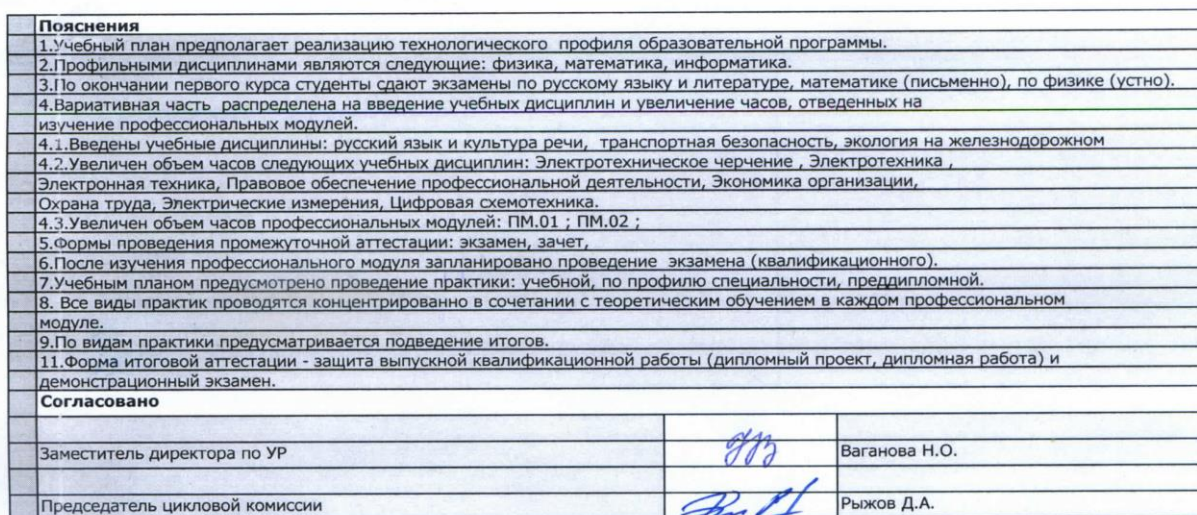 Пояснения
1.Учебный план предполагает реализацию технологического профиля образовательной программы.
2.Профильными дисциплинами являются следующие: физика, математика, информатика.
3.По окончании первого курса студенты сдают экзамены по русскому языку и литературе, математике (письменно), по физике (устно).
4.Вариативная часть распределена на введение учебных дисциплин и увеличение часов, отведенных на
изучение профессиональных модулей.
4.1.Введены учебные дисциплины: русский язык и культура речи, транспортная безопасность, экология на железнодорожном
4.2.Увеличен объем часов следующих учебных дисциплин: Электротехническое черчение , Электротехника ,
Электронная техника, Правовое обеспечение профессиональной деятельности, Экономика организации,
Охрана труда, Электрические измерения, Цифровая схемотехника.
4.3.Увеличен объем часов профессиональных модулей: ПМ.01 ; ПМ.02 ;
5.Формы проведения промежуточной аттестации: экзамен, зачет,
6.После изучения профессионального модуля запланировано проведение экзамена (квалификационного).
7.Учебным планом предусмотрено проведение практики: учебной, по профилю специальности, преддипломной.
8. Все виды практик проводятся концентрированно в сочетании с теоретическим обучением в каждом профессиональном
модуле.
9.По видам практики предусматривается подведение итогов.
11.Форма итоговой аттестации - защита выпускной квалификационной работы (дипломный проект, дипломная работа) и
демонстрационный экзамен.
Согласовано
Заместитель директора по УР Ваганова Н.О.
Председатель цикловой комиссии Рыжов Д.А.